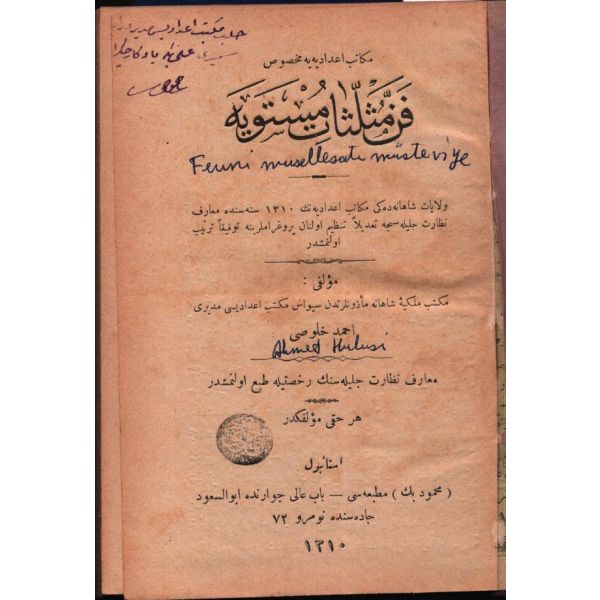 مكاتب اعداديه‌يه مخصوص
فن مثلثات مستويه
Fenni musellesatı müsteviye
ولايات شاهانه‌ده‌كى مكاتب اعداديه‌نك ١٣١٠ سنه سنده معارف
نظارت جليله سنجه تعديلاً تنظيم اولنان پروغراملرينه توفيقاً ترتيب
اولنمشدر
مؤلفى :
مكتب ملكيهٔ شاهانه مأذونلرندن سيواس مكتب اعداديسى مديرى
احمد خلوصى
Ahmed Hulusi
معارف نظارت جليله سنك رخصتيله طبع اولنمشدر
هر حقى مؤلفكدر
استانبول
( محمود بك ) مطبعه سى — باب عالى جوارنده ابوالسعود
جاده سنده نومرو ٧٢
١٣١٠